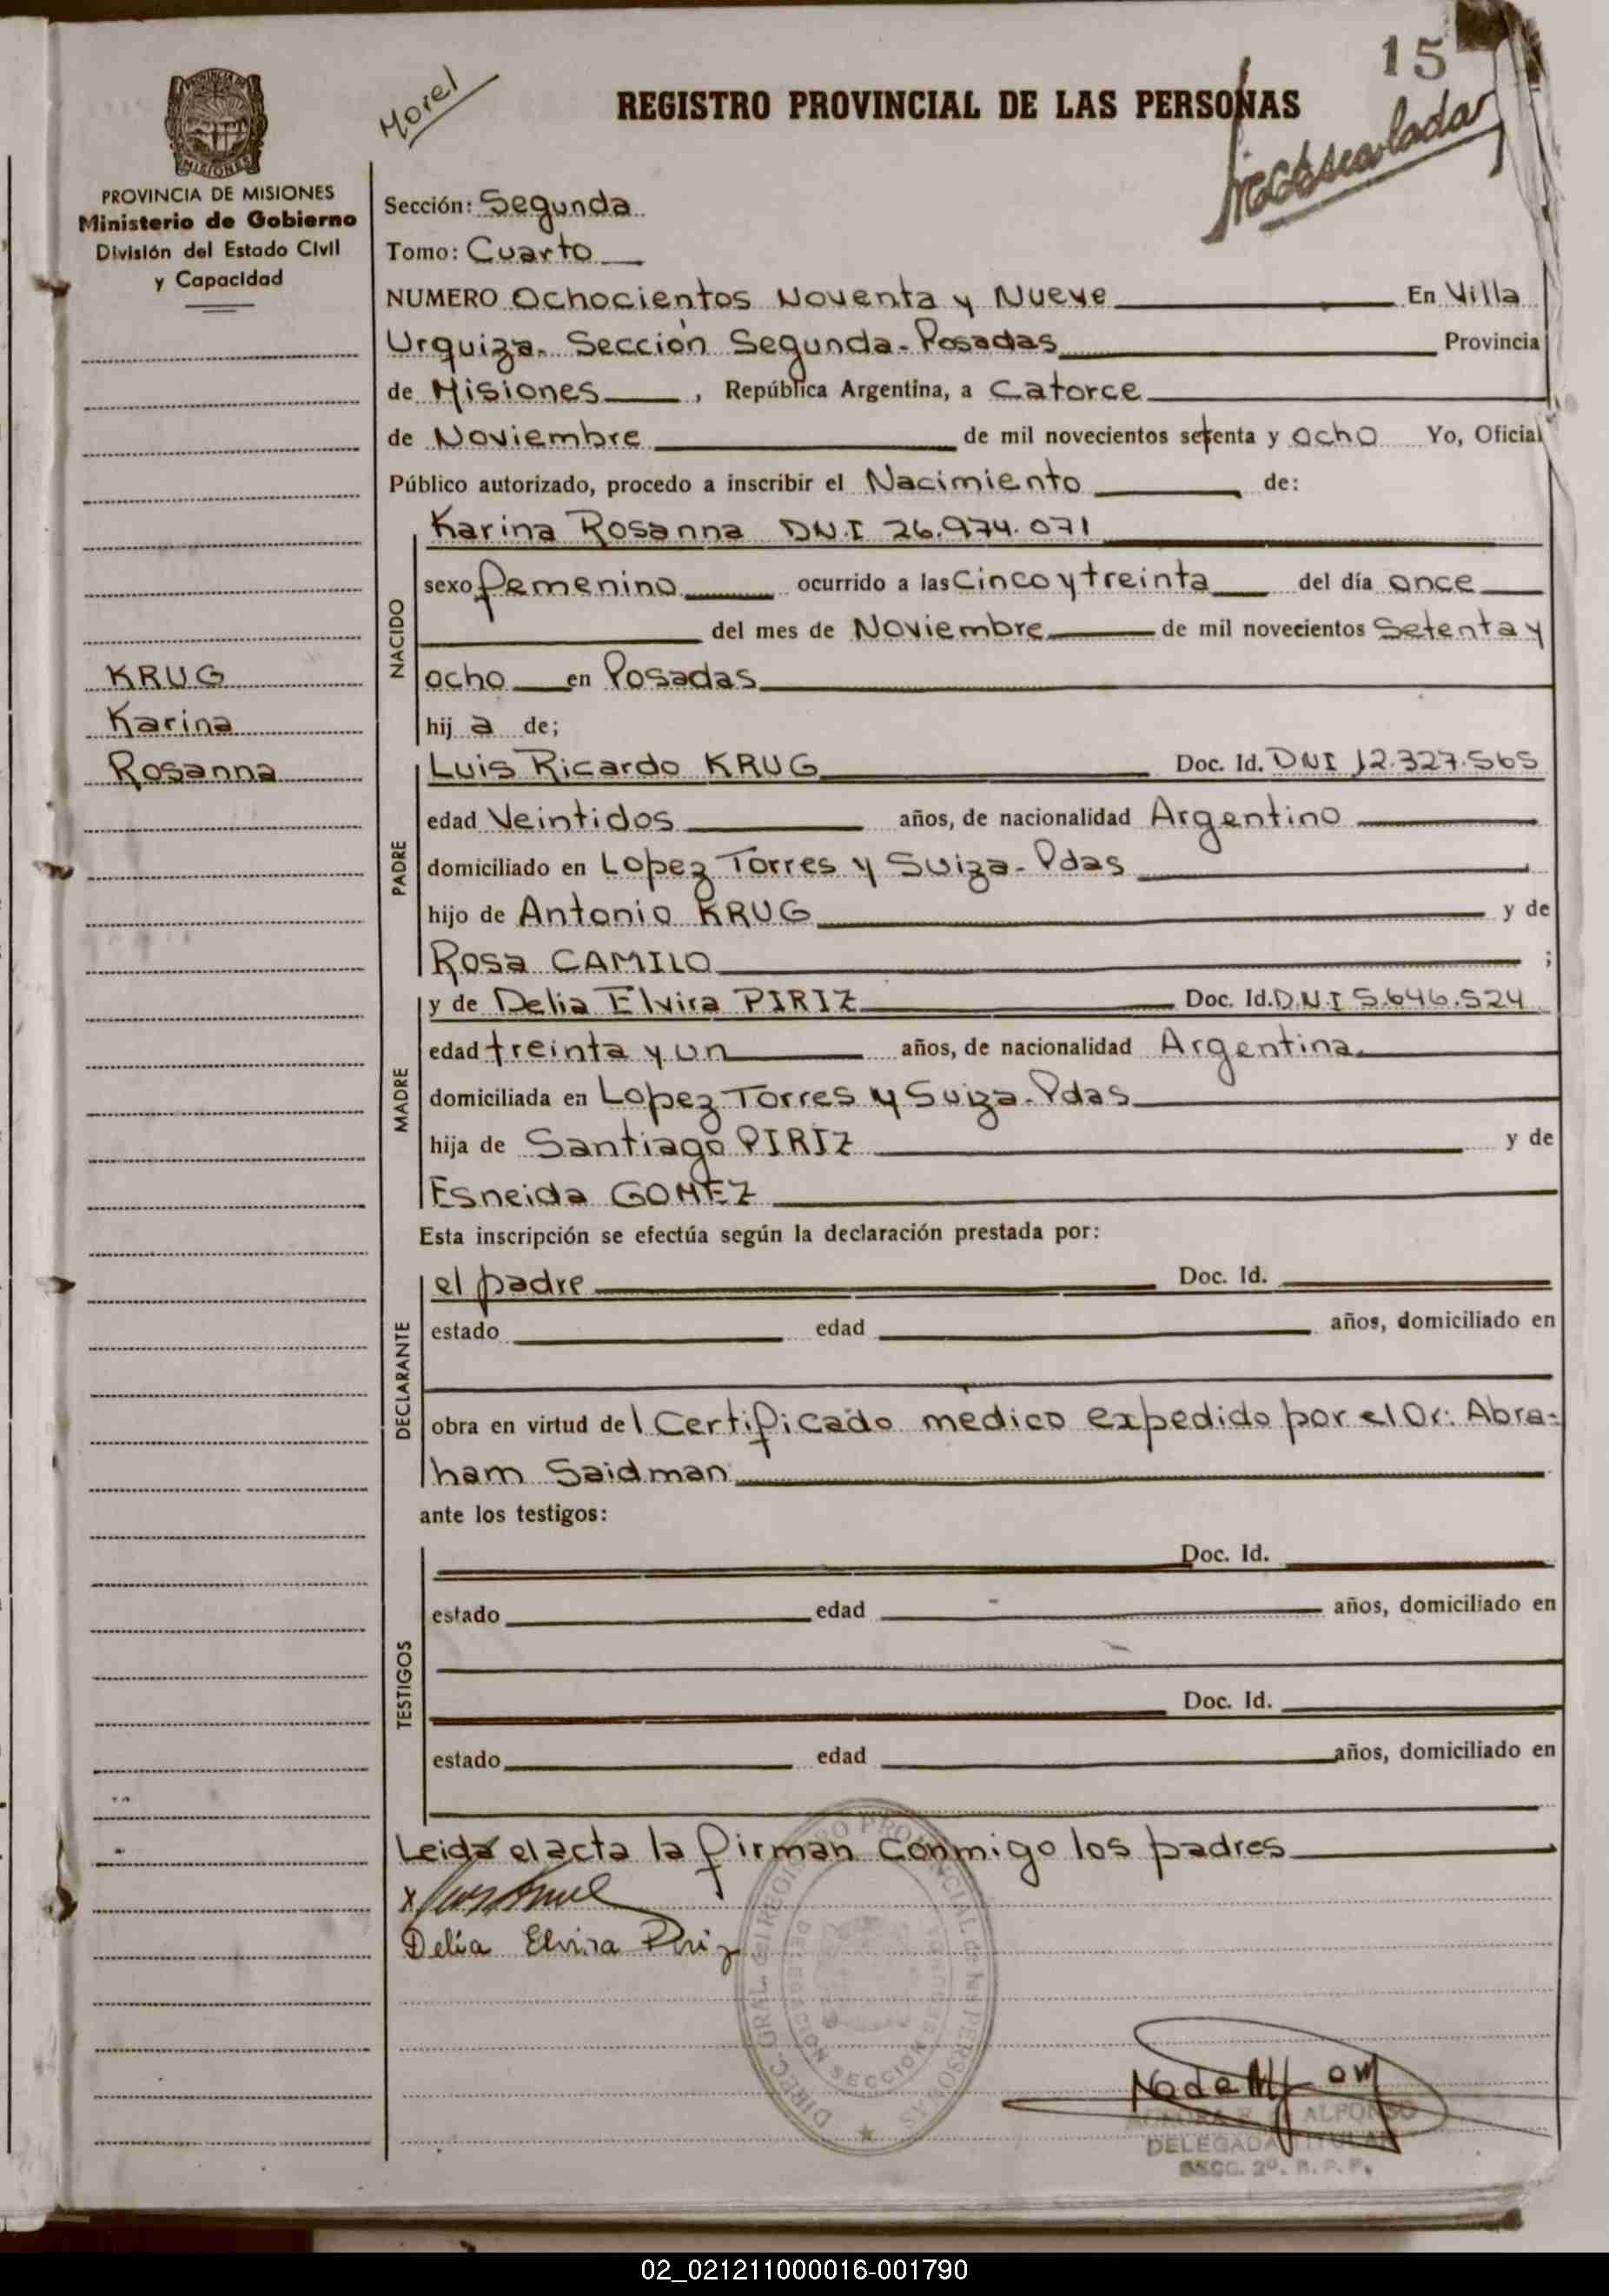 15
Morel
REGISTRO PROVINCIAL DE LAS PERSONAS
MISIONES
PROVINCIA DE MISIONES
Ministerio de Gobierno
División del Estado Civil
y Capacidad
Sección: Segunda
Tomo: Cuarto
NUMERO Ochocientos Noventa y Nueve En Villa
Urquiza. Sección Segunda - Posadas Provincia
de Misiones, República Argentina, a Catorce
de Noviembre de mil novecientos setenta y ocho Yo, Oficial
Público autorizado, procedo a inscribir el Nacimiento de:
Karina Rosanna DN.I 26.974.071
NACIDO
sexo femenino ocurrido a las Cinco y treinta del día once
del mes de Noviembre de mil novecientos Setenta y
ocho en Posadas
KRUG
Karina
Rosanna
hij a de;
PADRE
Luis Ricardo KRUG Doc. Id. DNI 12.327.565
edad Veintidos años, de nacionalidad Argentino
domiciliado en Lopez Torres y Suiza - Pdas
hijo de Antonio KRUG y de
Rosa CAMILO ;
MADRE
y de Delia Elvira PIRIZ Doc. Id. D.N.I 5.646.524
edad treinta y un años, de nacionalidad Argentina
domiciliada en Lopez Torres y Suiza - Pdas
hija de Santiago PIRIZ y de
Esneida GOMEZ
Esta inscripción se efectúa según la declaración prestada por:
DECLARANTE
el padre Doc. Id.
estado edad años, domiciliado en
obra en virtud de l Certificado medico expedido por el Dr: Abra-
ham Saidman
ante los testigos:
TESTIGOS
Doc. Id.
estado edad años, domiciliado en
Doc. Id.
estado edad años, domiciliado en
Leida el acta la firman conmigo los padres
x
Delia Elvira Piriz
DIREC. GRAL. REGISTRO PROVINCIAL de las PERSONAS
DELEGACION SECCION
ALFONSO
DELEGADA TITULAR
SECC. 2º. R. P. P.
02_021211000016-001790